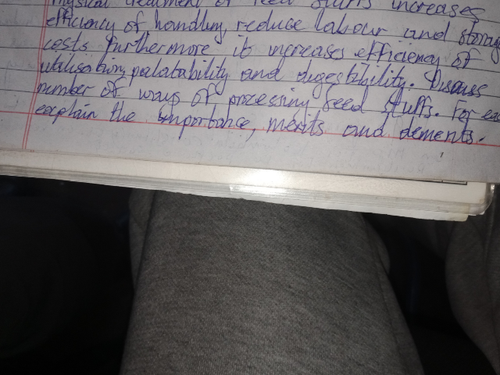 Physical treatment of feed stuffs increases
efficiency of handling, reduce labour and storage
costs. Furthermore it increases efficiency of
utilisation, palatability and digestibility. Discuss
number of ways of processing feed stuffs. For each
explain the importance, merits and demerits.